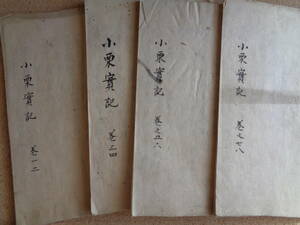 小栗實記 巻一二
小栗實記 巻三四
小栗實記 巻之五六
小栗實記 巻七八